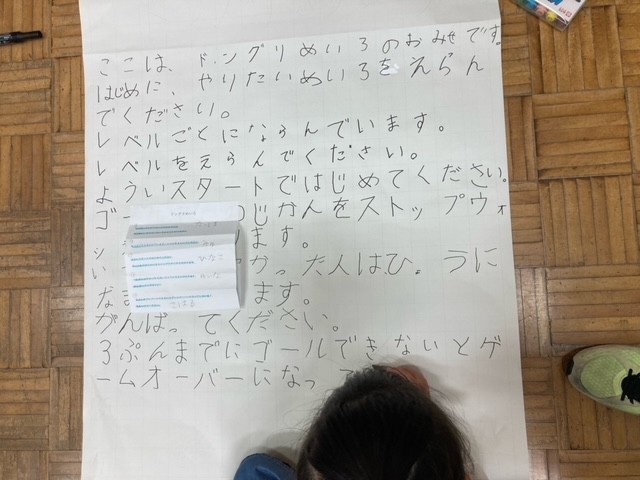 ここは、ドングリめいろのおみせです。
はじめに、やりたいめいろをえらん
でください。
レベルごとにならんでいます。
レベルをえらんでください。
よういスタートではじめてください。
ゴー じかんをストップウォ
ッ ます。
い かった人はひょうに
な ます。
がんばってください。
3ぷんまでにゴールできないとゲ
ームオーバーになっ
ひなこ